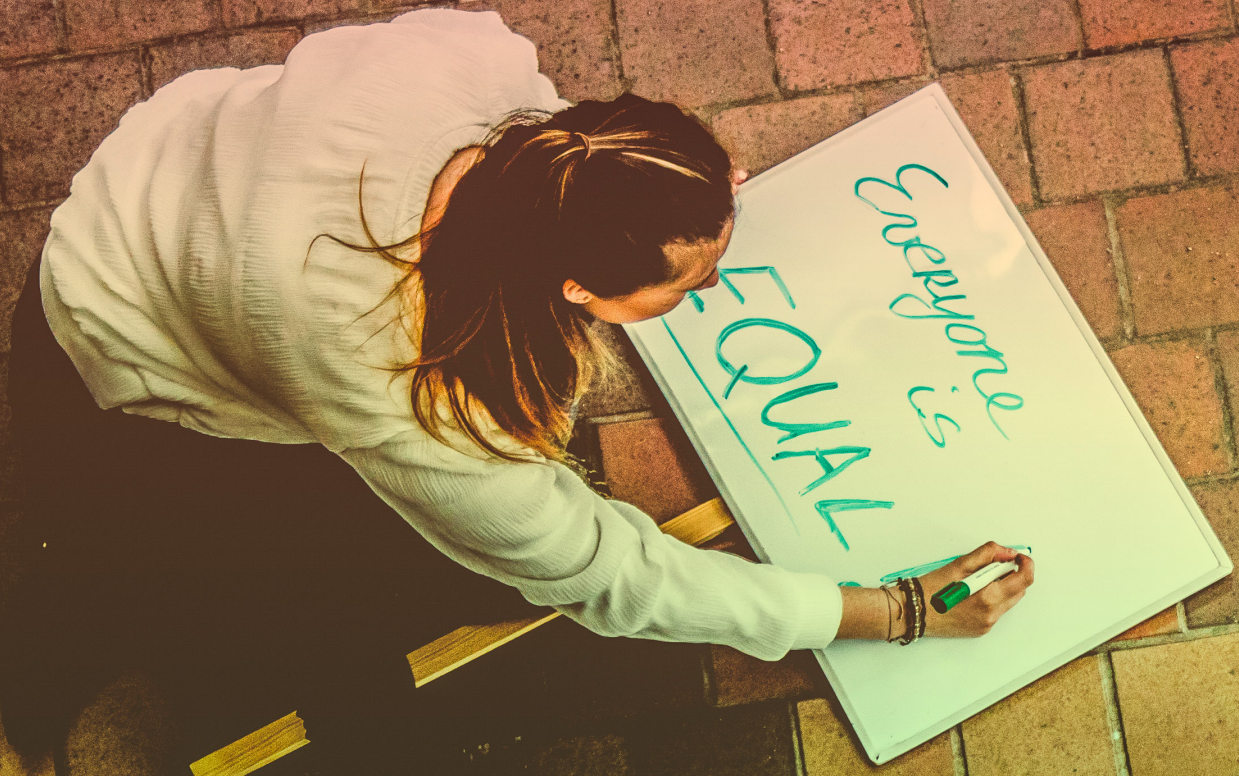 Everyone
is
EQUAL